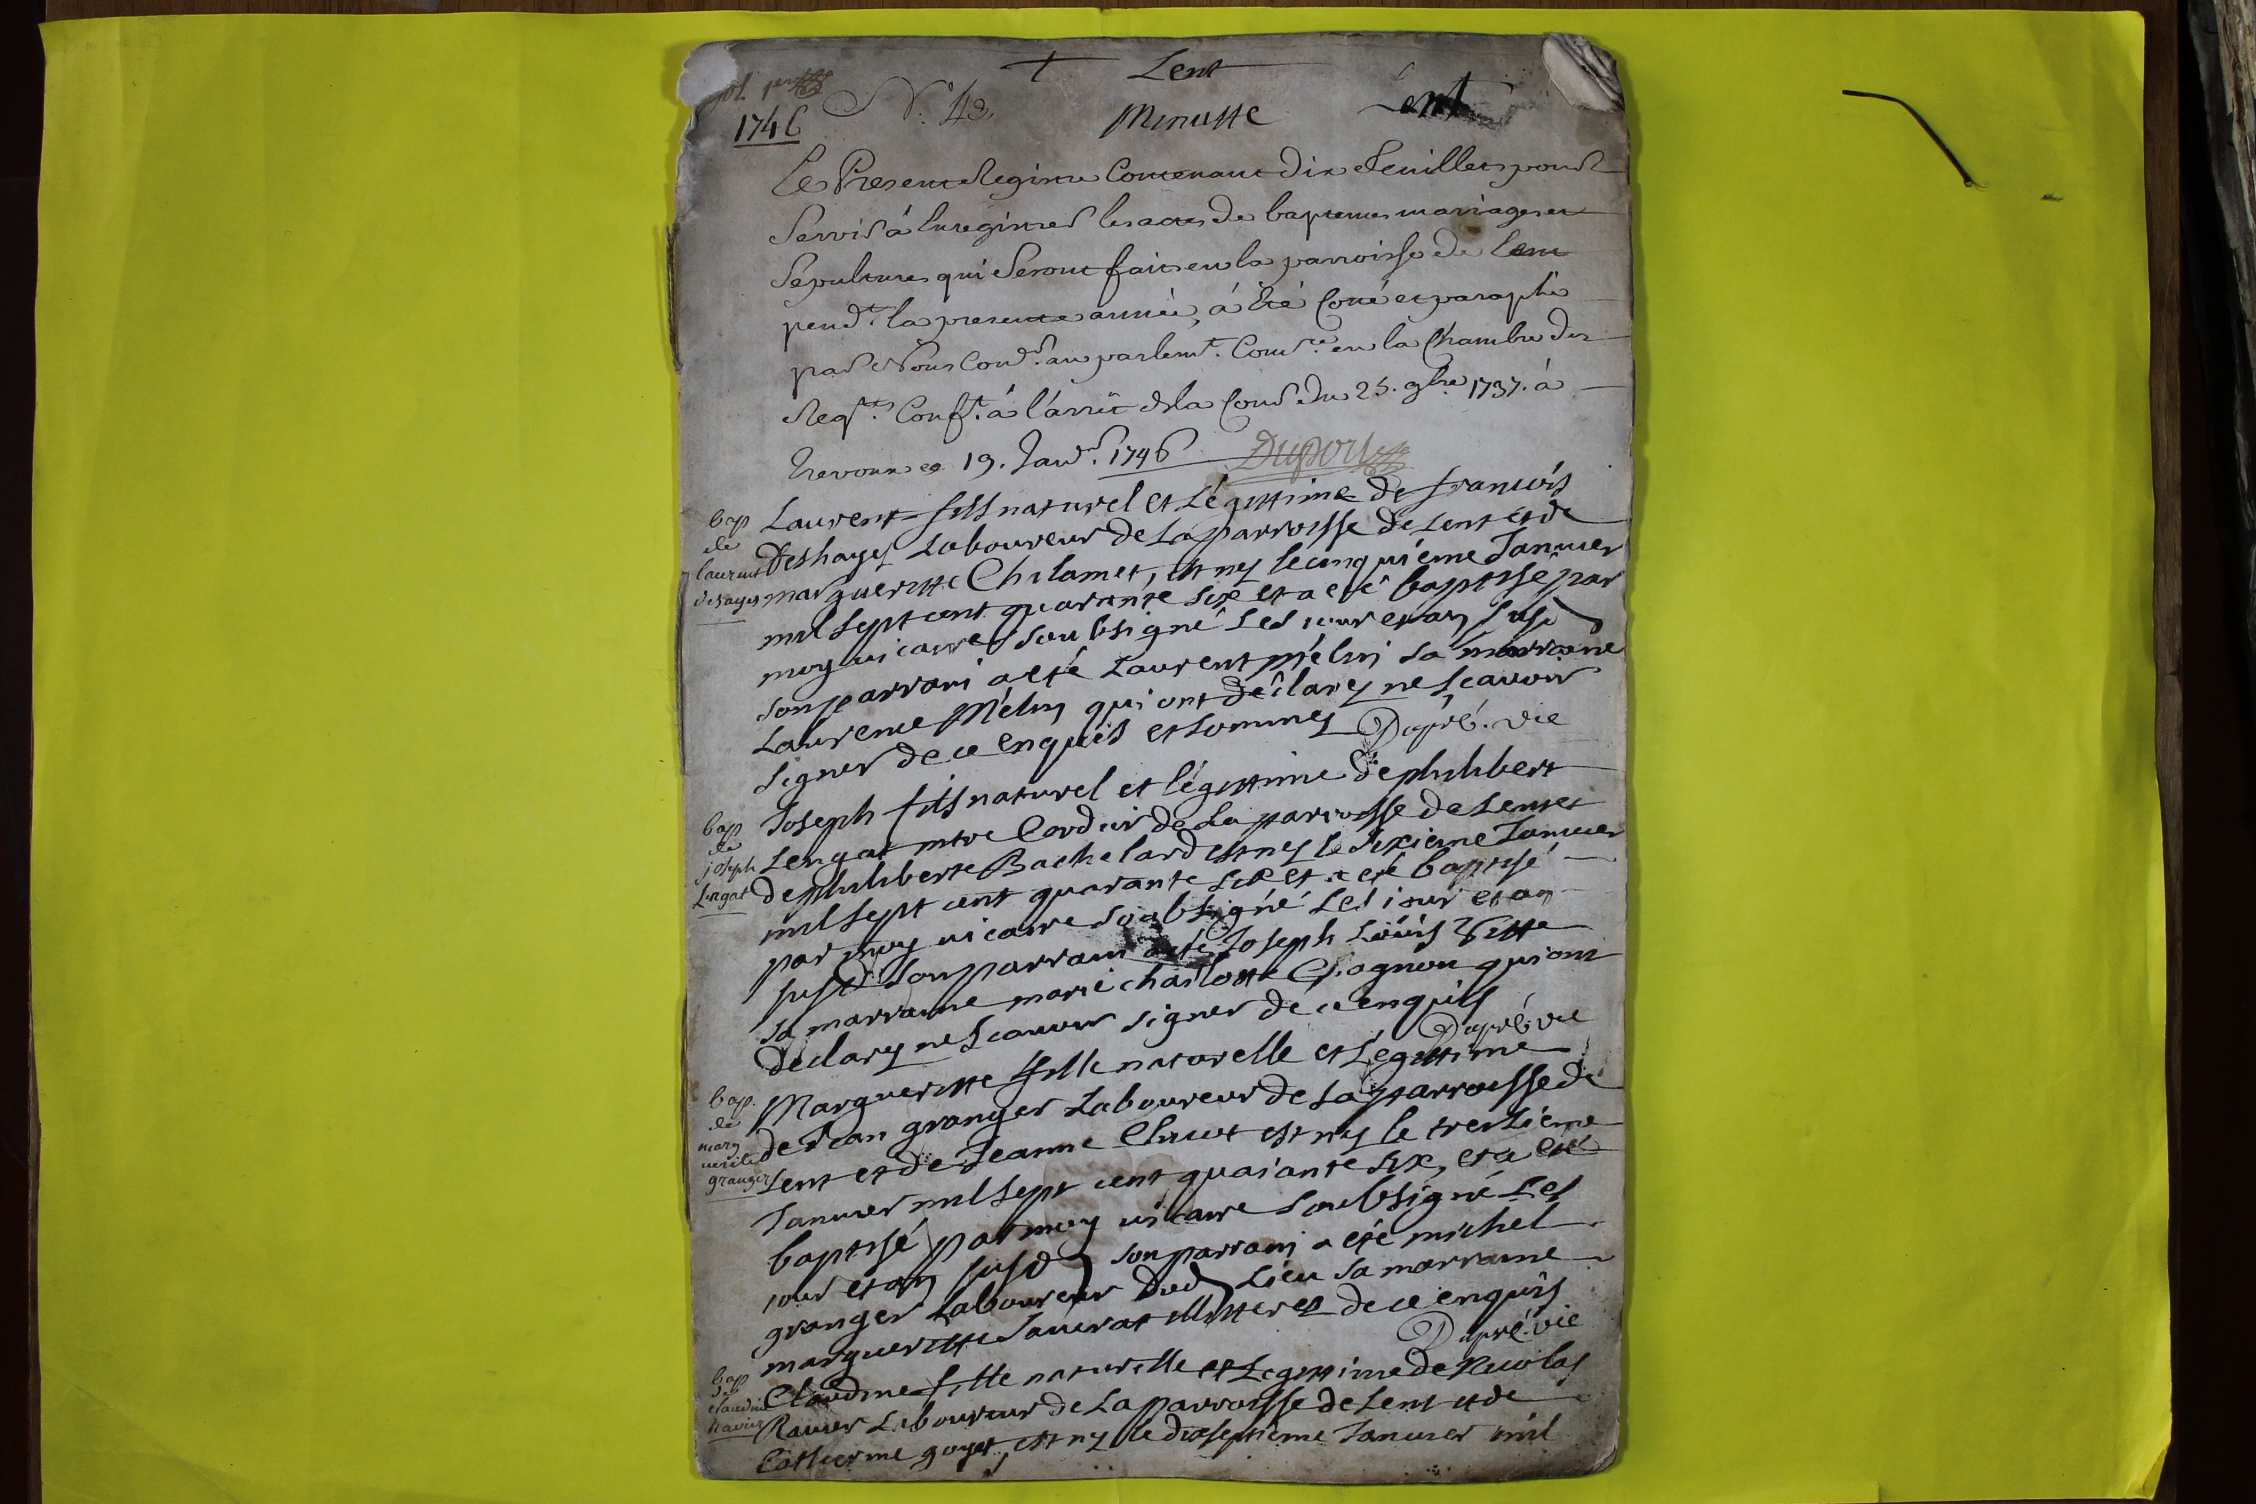 fol. pr
† Lent
1746 N.º 43. Minutte Lent
Le Present Registre Contenant dix feuillets pour
Servir à Enregistrer les actes de baptemes mariages et
Sépultures qui Seront faits en la parroisse de Lent
pend.t la presente année, à été Cotté et paraphé
par Nous Con.er au parlem.t Com.re en la Chambre des
Req.tes Conf.t à l'arrêt de la Cour du 25. 9bre 1737. à
Trevoux ce 19. Janv.r 1746 Duport
bap de laurent deshayes
Laurent fils naturel et Légittime de francois
Deshayes Laboureur de La parroisse de Lent et de
margueritte Chilomet, est ny le cinquième Janvier
mil sept cent quarante six et a eté baptisé par
moy vicaire soubsigné Les iour et an susd
son parrain a eté Laurent mélin sa marraine
Laurence Mélin qui ont déclaré ne scavoir
signer de ce enquis et sommés Dupré. vic
bap de joseph Lengat
Joseph fils naturel et légittime de philibert
Lengat mtre Cordier de La parroisse de Lent et
de philiberte Bachelard est ny le sixieme Janvier
mil sept cent quarante six et a eté baptisé
par moy vicaire soubsigné Les iour et an
susd son parrain a eté Joseph Loüis
sa marraine marie charlotte Chagnon qui ont
declaré ne scavoir signer de ce enquis
Dupré vic
bap. de marguerite granger
Margueritte fille naturelle et Legittime
de Jean granger Laboureur de La parroisse de
Lent et de Jeanne est ny le treizieme
Janvier mil sept cent quarante six, et a eté
baptisé par moy vicaire soubsigné Les
iour et an susd son parrain a eté michel
granger Laboureur dud Lieu sa marraine
margueritte illitterés de ce enquis
Dupré. vic
bap de claudine Ravier
Claudine fille naturelle et Legittime de Nicolas
Ravier Laboureur de La parroisse de Lent et de
Catherine goyet, est ny le dixseptieme Janvier mil